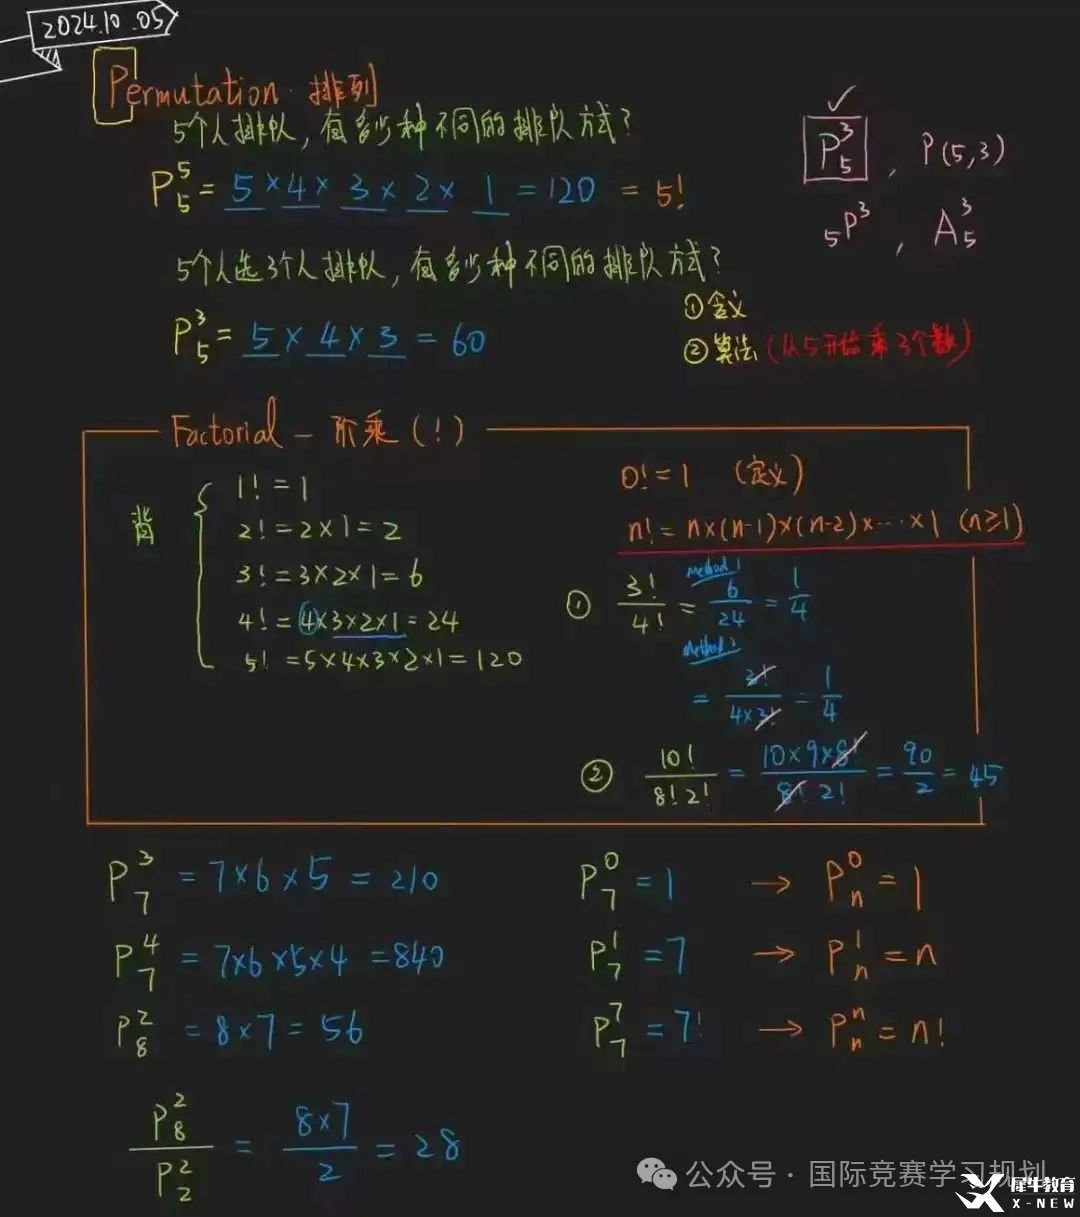 2024.10.05
Permutation 排列
5个人排队,有多少种不同的排队方式?
P₅⁵ = 5 × 4 × 3 × 2 × 1 = 120 = 5!
✓
P₅³ , P(5,3)
₅P³ , A₅³
5个人选3个人排队,有多少种不同的排队方式?
P₅³ = 5 × 4 × 3 = 60
① 含义
② 算法 (从5开始乘3个数)
Factorial — 阶乘 (!)
背
1! = 1
2! = 2×1 = 2
3! = 3×2×1 = 6
4! = 4×3×2×1 = 24
5! = 5×4×3×2×1 = 120
0! = 1 (定义)
n! = n×(n-1)×(n-2)×···×1 (n≥1)
Method 1
① 3!/4! = 6/24 = 1/4
Method 2
= 3!/(4×3!) = 1/4
② 10!/(8!2!) = (10×9×8!)/(8!2!) = 90/2 = 45
P₇³ = 7×6×5 = 210
P₇⁴ = 7×6×5×4 = 840
P₈² = 8×7 = 56
P₈²/P₂² = (8×7)/2 = 28
P₇⁰ = 1 → Pₙ⁰ = 1
P₇¹ = 7 → Pₙ¹ = n
P₇⁷ = 7! → Pₙⁿ = n!
公众号 · 国际竞赛学习规划
犀牛教育
X-NEW